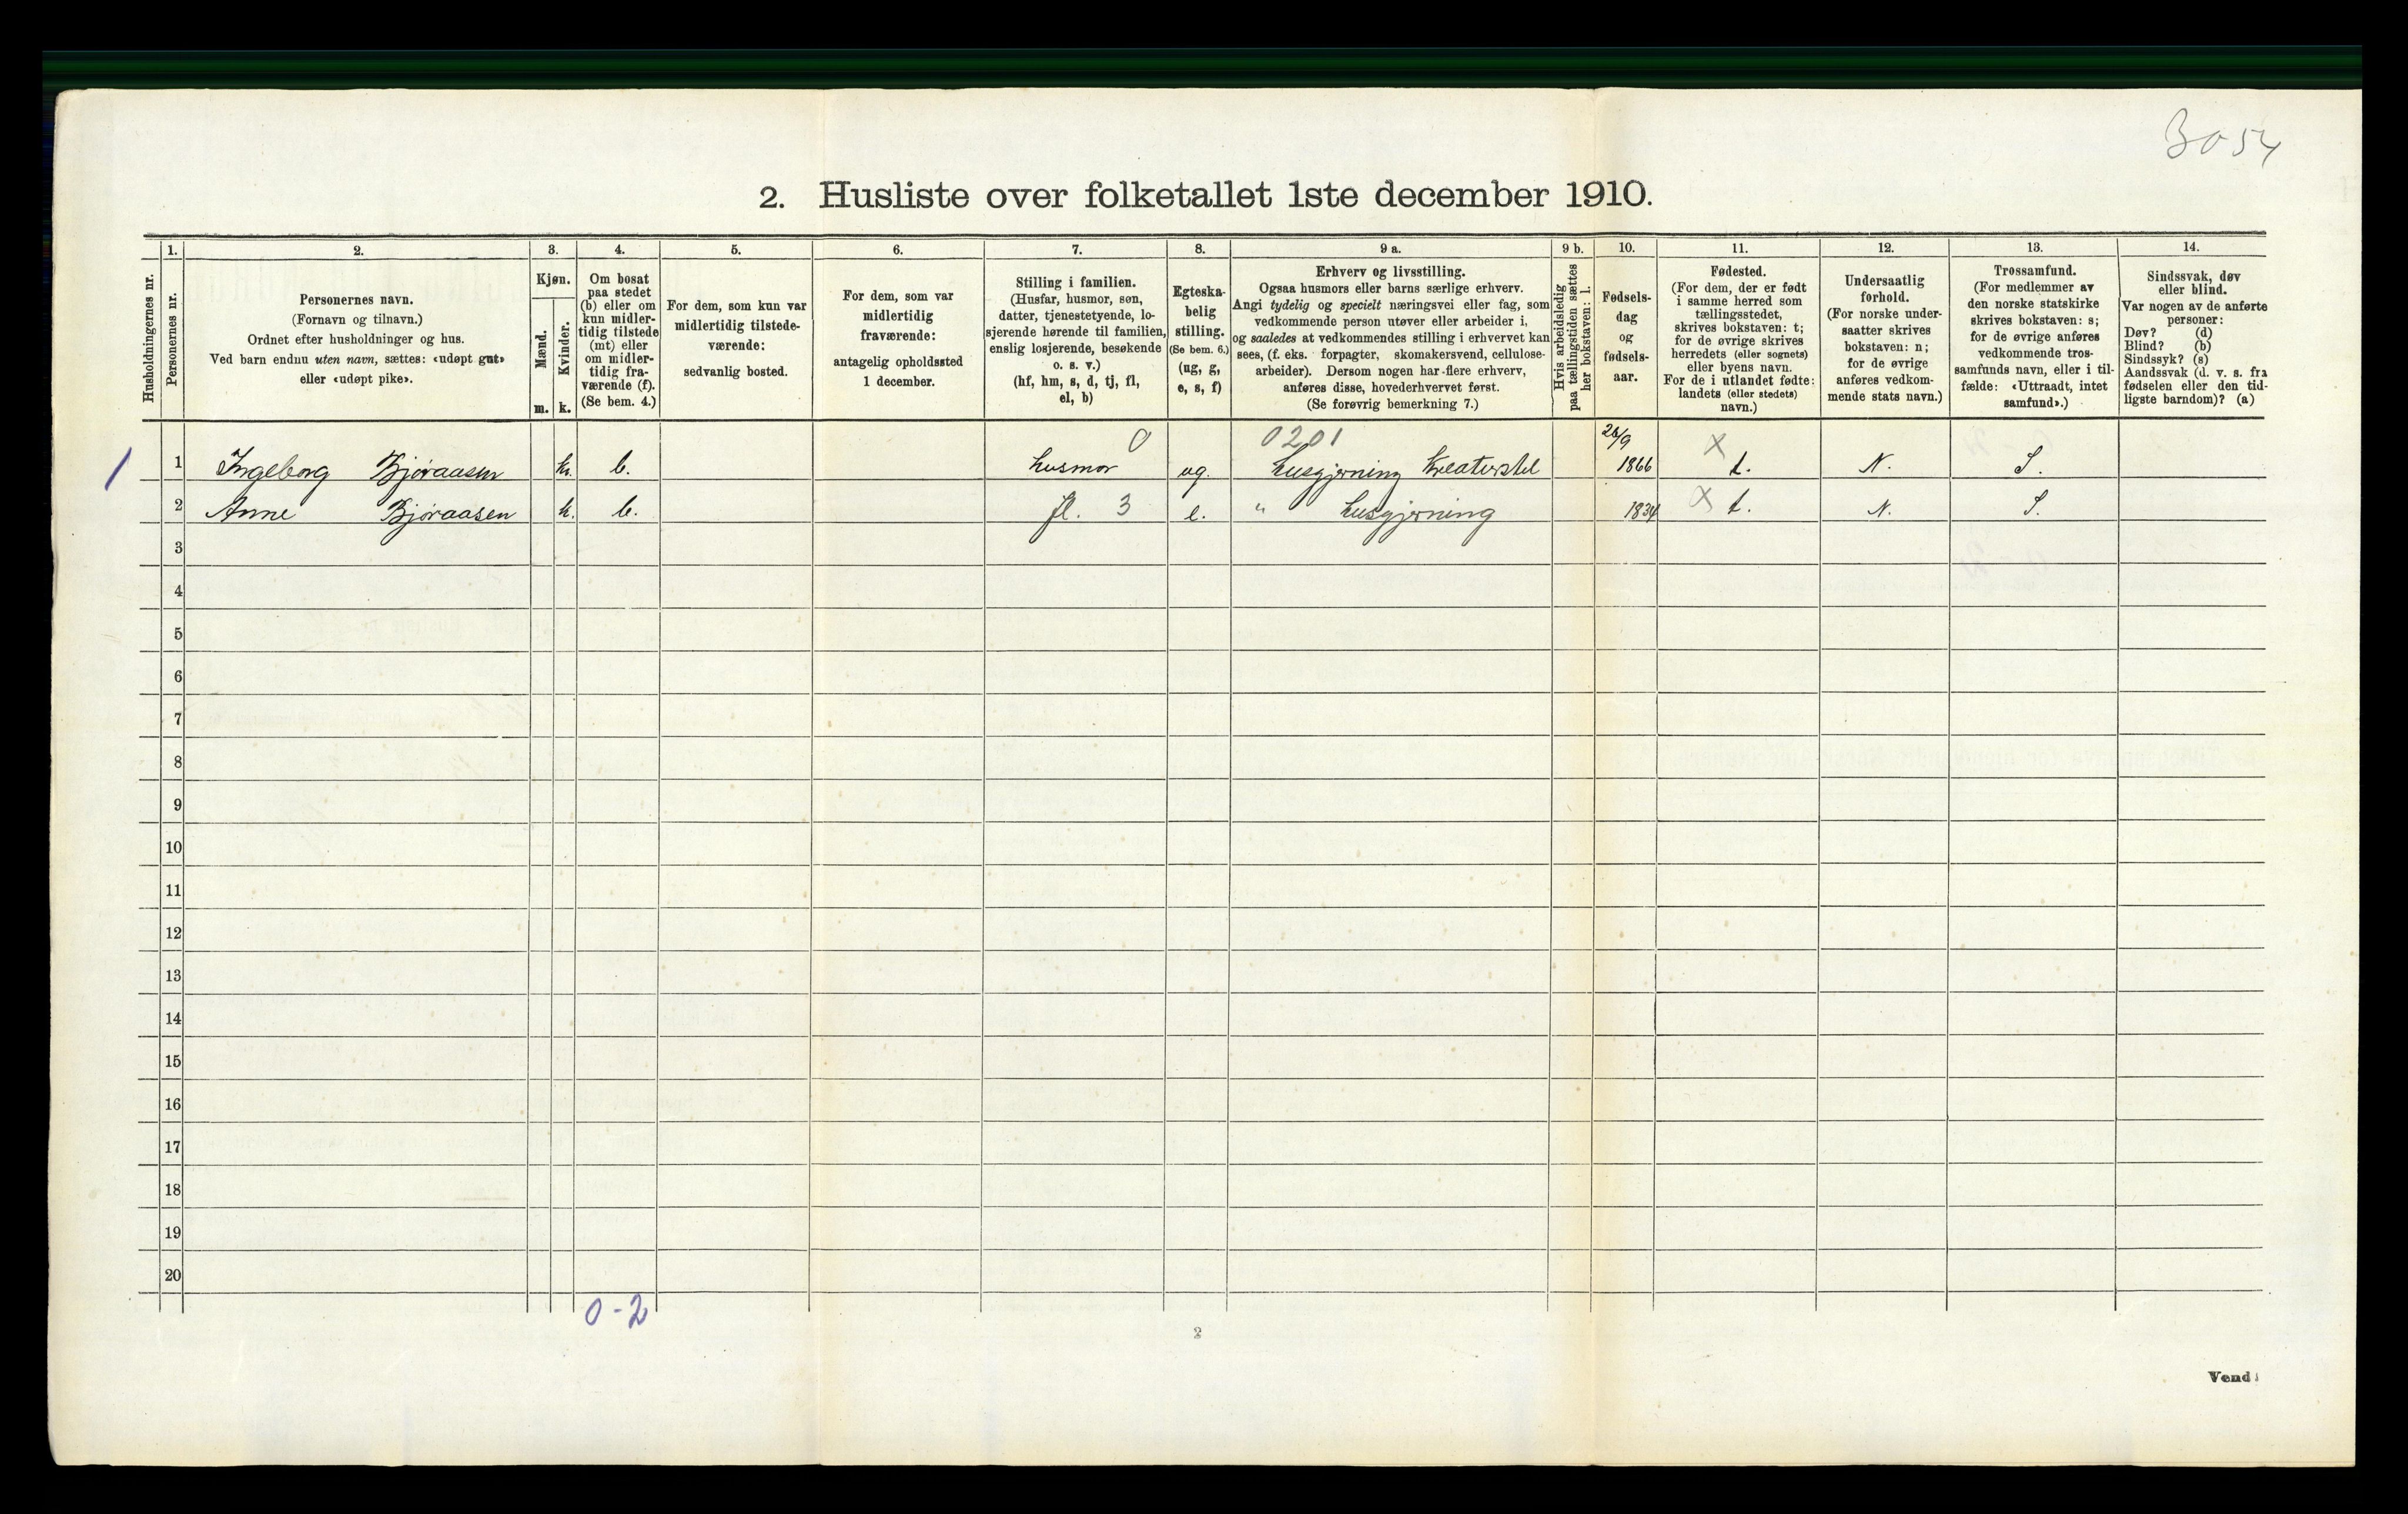 3054
2. Husliste over folketallet 1ste december 1910.
Husholdningernes nr.
1.
Personernes nr.
2.
Personernes navn.
(Fornavn og tilnavn.)
Ordnet efter husholdninger og hus.
Ved barn endnu uten navn, sættes: «udøpt gut»
eller «udøpt pike».
3.
Kjøn.
Mænd.
Kvinder.
m. k.
4.
Om bosat
paa stedet
(b) eller om
kun midler-
tidig tilstede
(mt) eller
om midler-
tidig fra-
værende (f).
(Se bem. 4.)
5.
For dem, som kun var
midlertidig tilstede-
værende:
sedvanlig bosted.
6.
For dem, som var
midlertidig
fraværende:
antagelig opholdssted
1 december.
7.
Stilling i familien.
(Husfar, husmor, søn,
datter, tjenestetyende, lo-
sjerende hørende til familien,
enslig losjerende, besøkende
o. s. v.)
(hf, hm, s, d, tj, fl,
el, b)
8.
Egteska-
belig
stilling.
(Se bem. 6.)
(ug, g,
e, s, f)
9 a.
Erhverv og livsstilling.
Ogsaa husmors eller barns særlige erhverv.
Angi tydelig og specielt næringsvei eller fag, som
vedkommende person utøver eller arbeider i,
og saaledes at vedkommendes stilling i erhvervet kan
sees, (f. eks. forpagter, skomakersvend, cellulose-
arbeider). Dersom nogen har flere erhverv,
anføres disse, hovederhvervet først.
(Se forøvrig bemerkning 7.)
9 b.
Hvis arbeidsledig
paa tællingstiden sættes
her bokstaven: l.
10.
Fødsels-
dag
og
fødsels-
aar.
11.
Fødested.
(For dem, der er født
i samme herred som
tællingsstedet,
skrives bokstaven: t;
for de øvrige skrives
herredets (eller sognets)
eller byens navn.
For de i utlandet fødte:
landets (eller stedets)
navn.)
12.
Undersaatlig
forhold.
(For norske under-
saatter skrives
bokstaven: n;
for de øvrige
anføres vedkom-
mende stats navn.)
13.
Trossamfund.
(For medlemmer av
den norske statskirke
skrives bokstaven: s;
for de øvrige anføres
vedkommende tros-
samfunds navn, eller i til-
fælde: «Uttraadt, intet
samfund».)
14.
Sindssvak, døv
eller blind.
Var nogen av de anførte
personer:
Døv? (d)
Blind? (b)
Sindssyk? (s)
Aandssvak (d. v. s. fra
fødselen eller den tid-
ligste barndom)? (a)
0 0201 26/9 X
1 1 Ingeborg Bjøraasen k. b. husmor ug. husgjerning Kreaturstel 1866 t. N. S.
2 Anne Bjøraasen k. b. fl. 3 e. " husgjerning 1834 X t. N. S.
3
4
5
6
7
8
9
10
11
12
13
14
15
16
17
18
19
20
0-2
2
Vend!